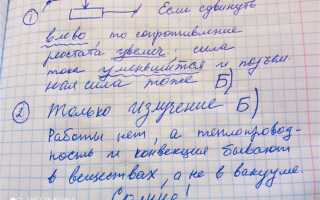 ① Если сдвинуть
влево, то сопротивление
реостата увелич. сила
тока уменьшится и подъем
ная сила тоже Б)
② Только излучение Б)
Работы нет, а теплопровод-
ность и конвекция бывают
в веществах, а не в вакууме.